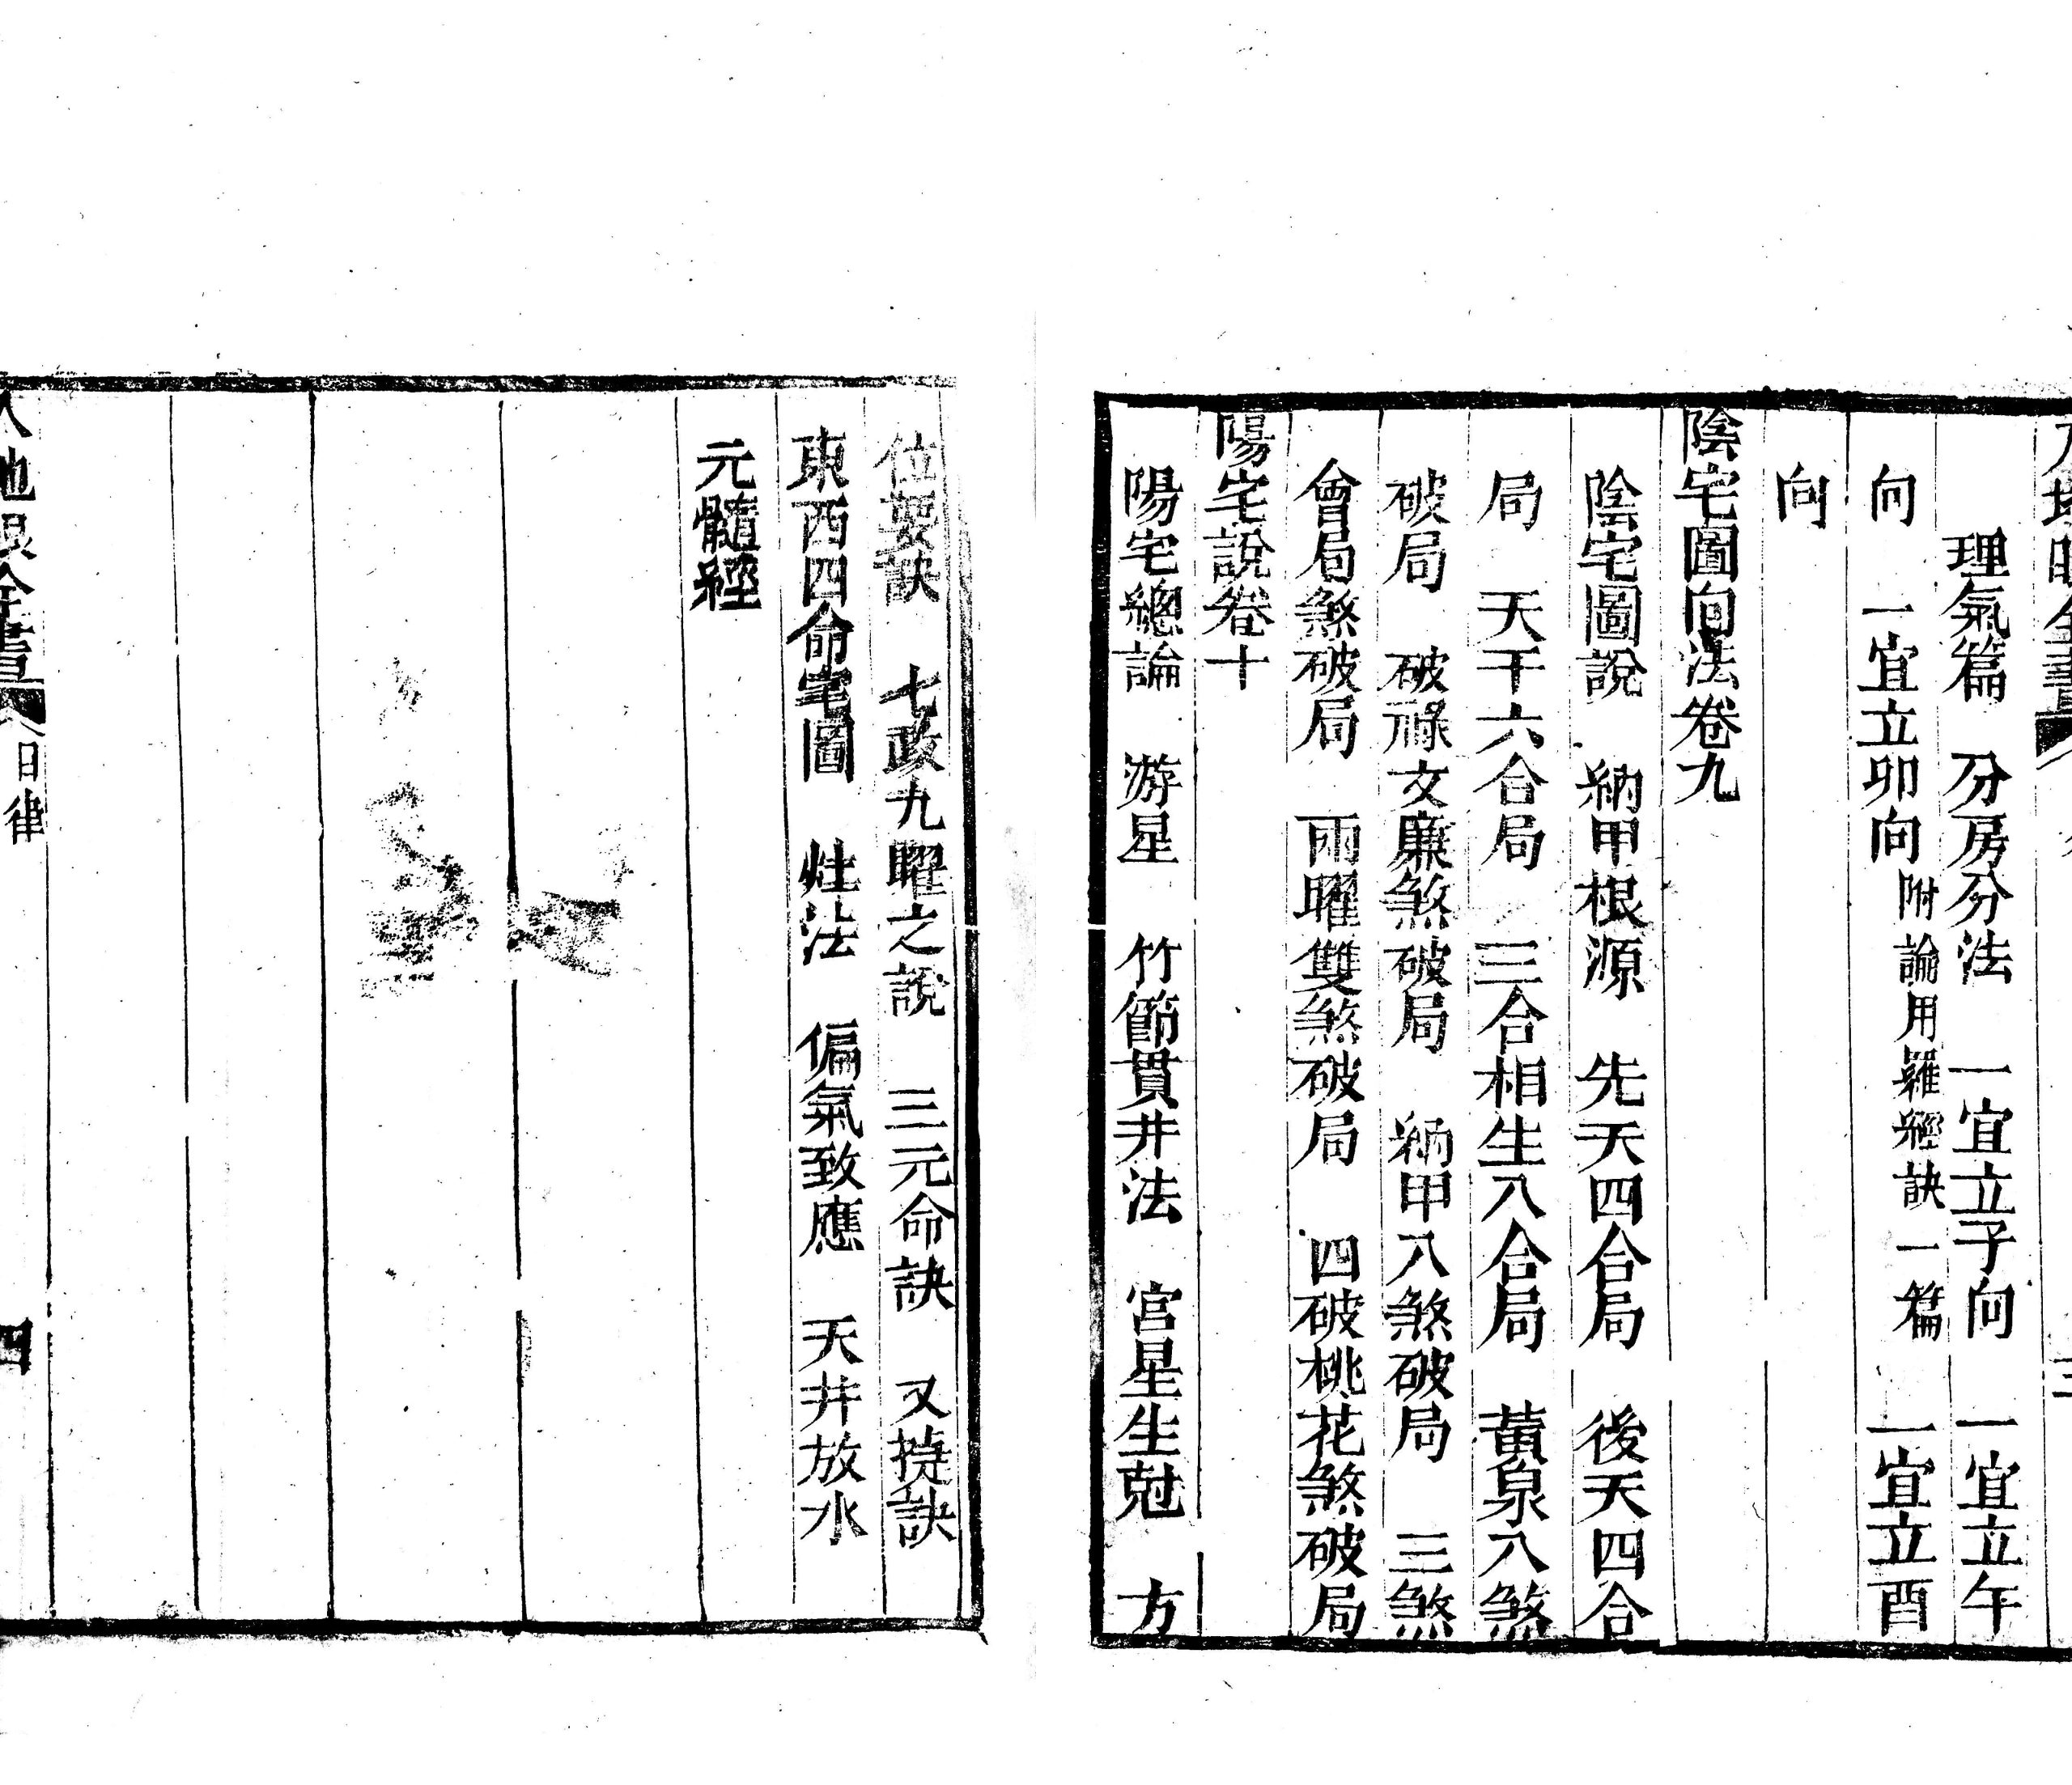 理氣篇　分房分法　一宜立子向　一宜立午
向　一宜立卯向　附論用羅經訣一篇　一宜立酉
向
陰宅圖向法卷九
陰宅圖說　納甲根源　先天四合局　後天四合
局　天干六合局　三合相生八合局　黃泉八煞
破局　破祿文廉煞破局　納甲八煞破局　三煞
會局煞破局　兩曜雙煞破局　四破桃花煞破局
陽宅說卷十
陽宅總論　游星　竹節貫井法　宮星生尅　方
位要訣　七政九曜之說　三元命訣　又捷訣
東西四命宅圖　灶法　偏氣致應　天井放水
元髓經
地眼全書　目律　四